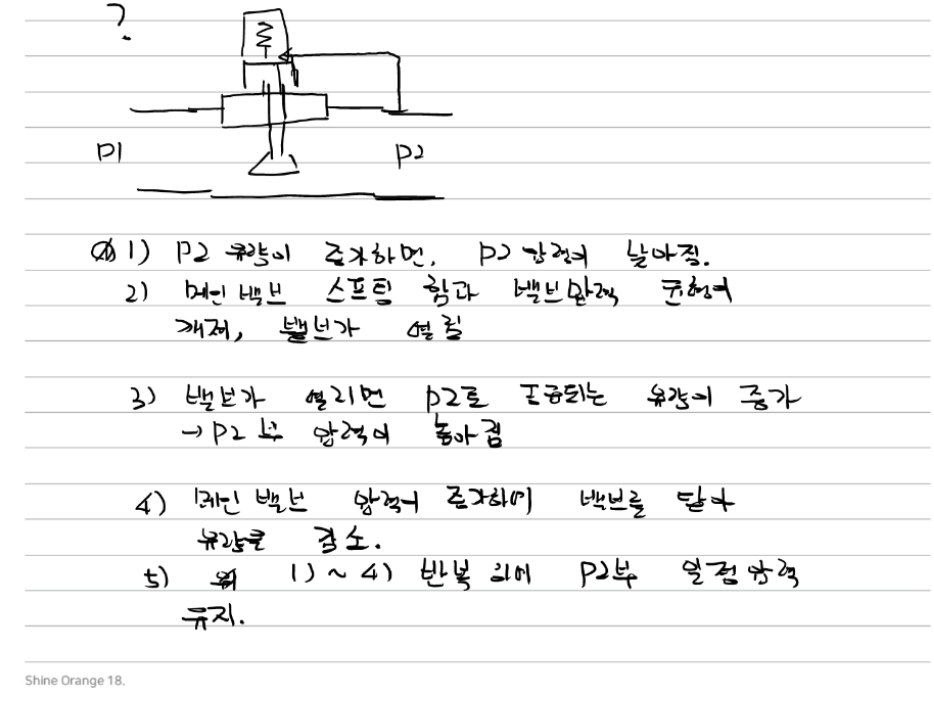 ?
P1
P2
1) P2 유량이 증가하면, P2 압력이 낮아짐.
2) 메인 밸브 스프링 힘과 밸브압력 균형이
깨져, 밸브가 열림
3) 밸브가 열리면 P2로 공급되는 유량이 증가
→ P2 부 압력이 높아짐
4) 메인 밸브 압력이 증가하여 밸브를 닫아
유량을 감소.
5) 1) ~ 4) 반복하여 P2부 일정압력
유지.
Shine Orange 18.